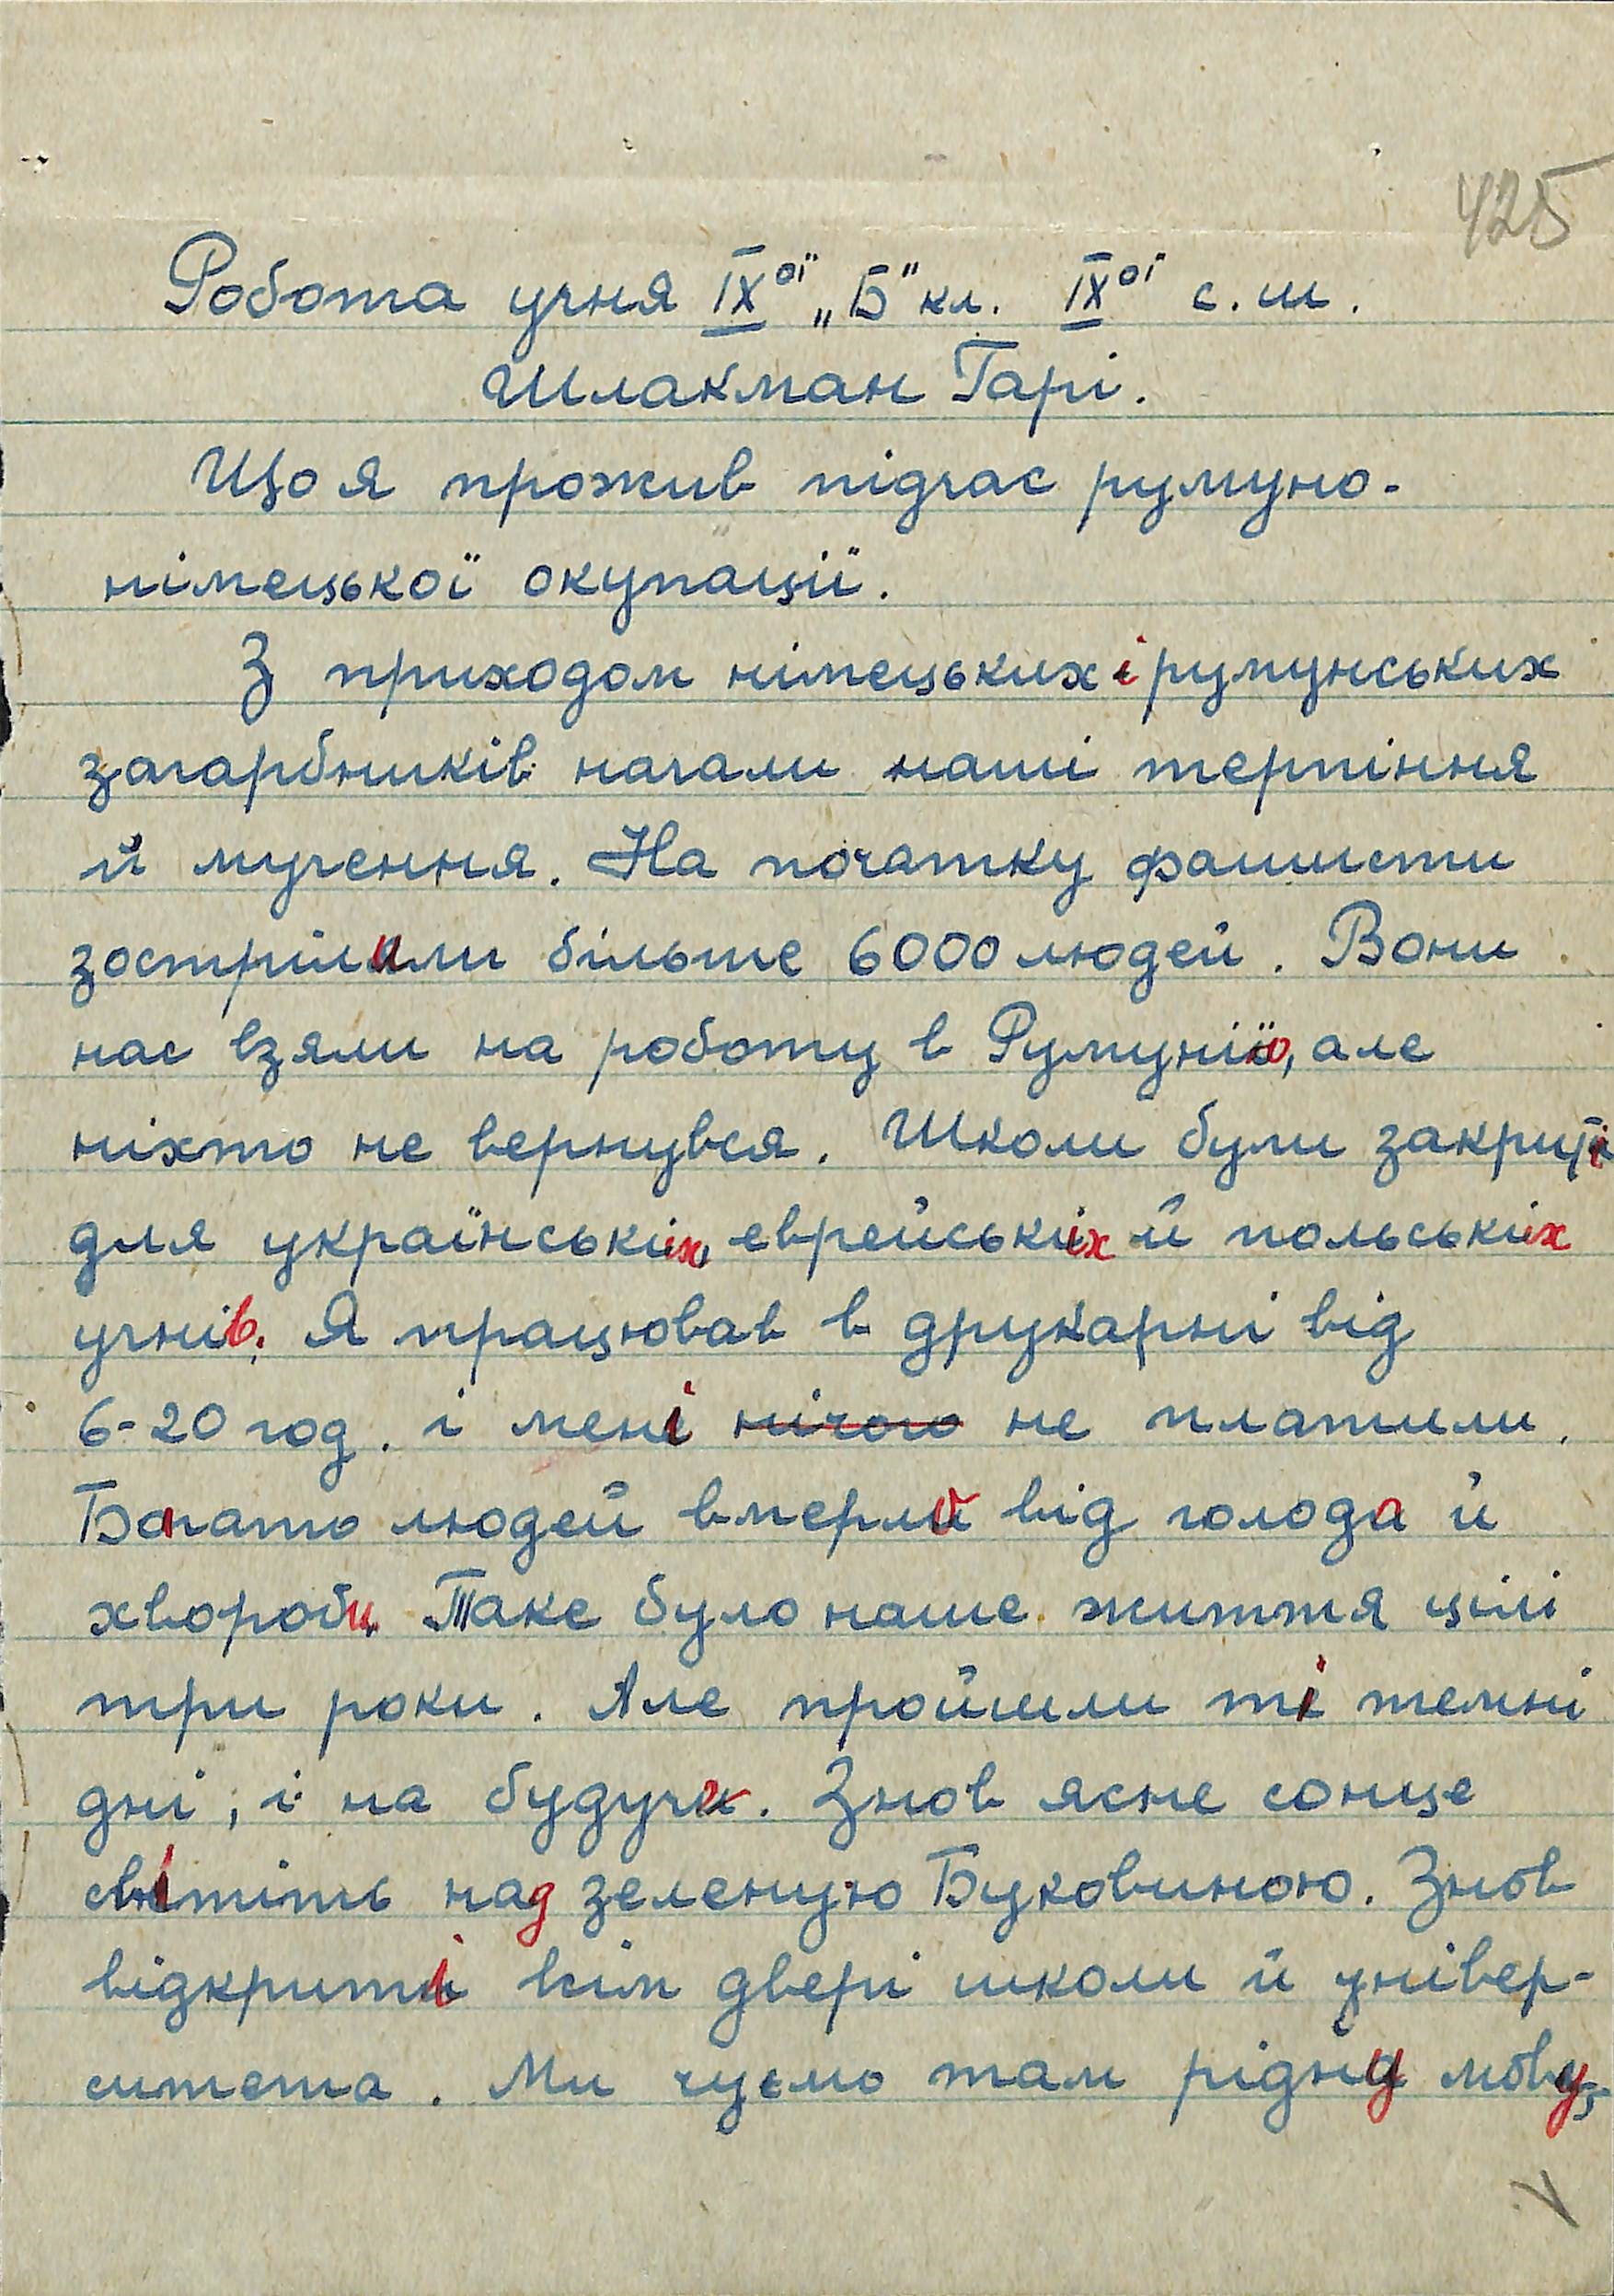 425
Робота учня IXої „Б" кл. IXої с. ш.
Шлакман Гарі.
Що я прожив підчас румуно-
німецької окупації.
З приходом німецьких і румунських
загарбників начали наші терпіння
й мучення. На початку фашисти
зострілили більше 6000 людей. Вони
нас взяли на роботу в Румунію, але
ніхто не вернувся. Школи були закриті
для українських, еврейських й польських
учнів. Я працював в друкарні від
6-20 год. і мені нічого не платили.
Багато людей вмерло від голода й
хвороби. Таке було наше життя цілі
три роки. Але пройшли ті темні
дні, і на будучи. Знов ясне сонце
світить над зеленую Буковиною. Знов
відкриті всім двері школи й універ-
ситета. Ми чуємо там рідну мову,